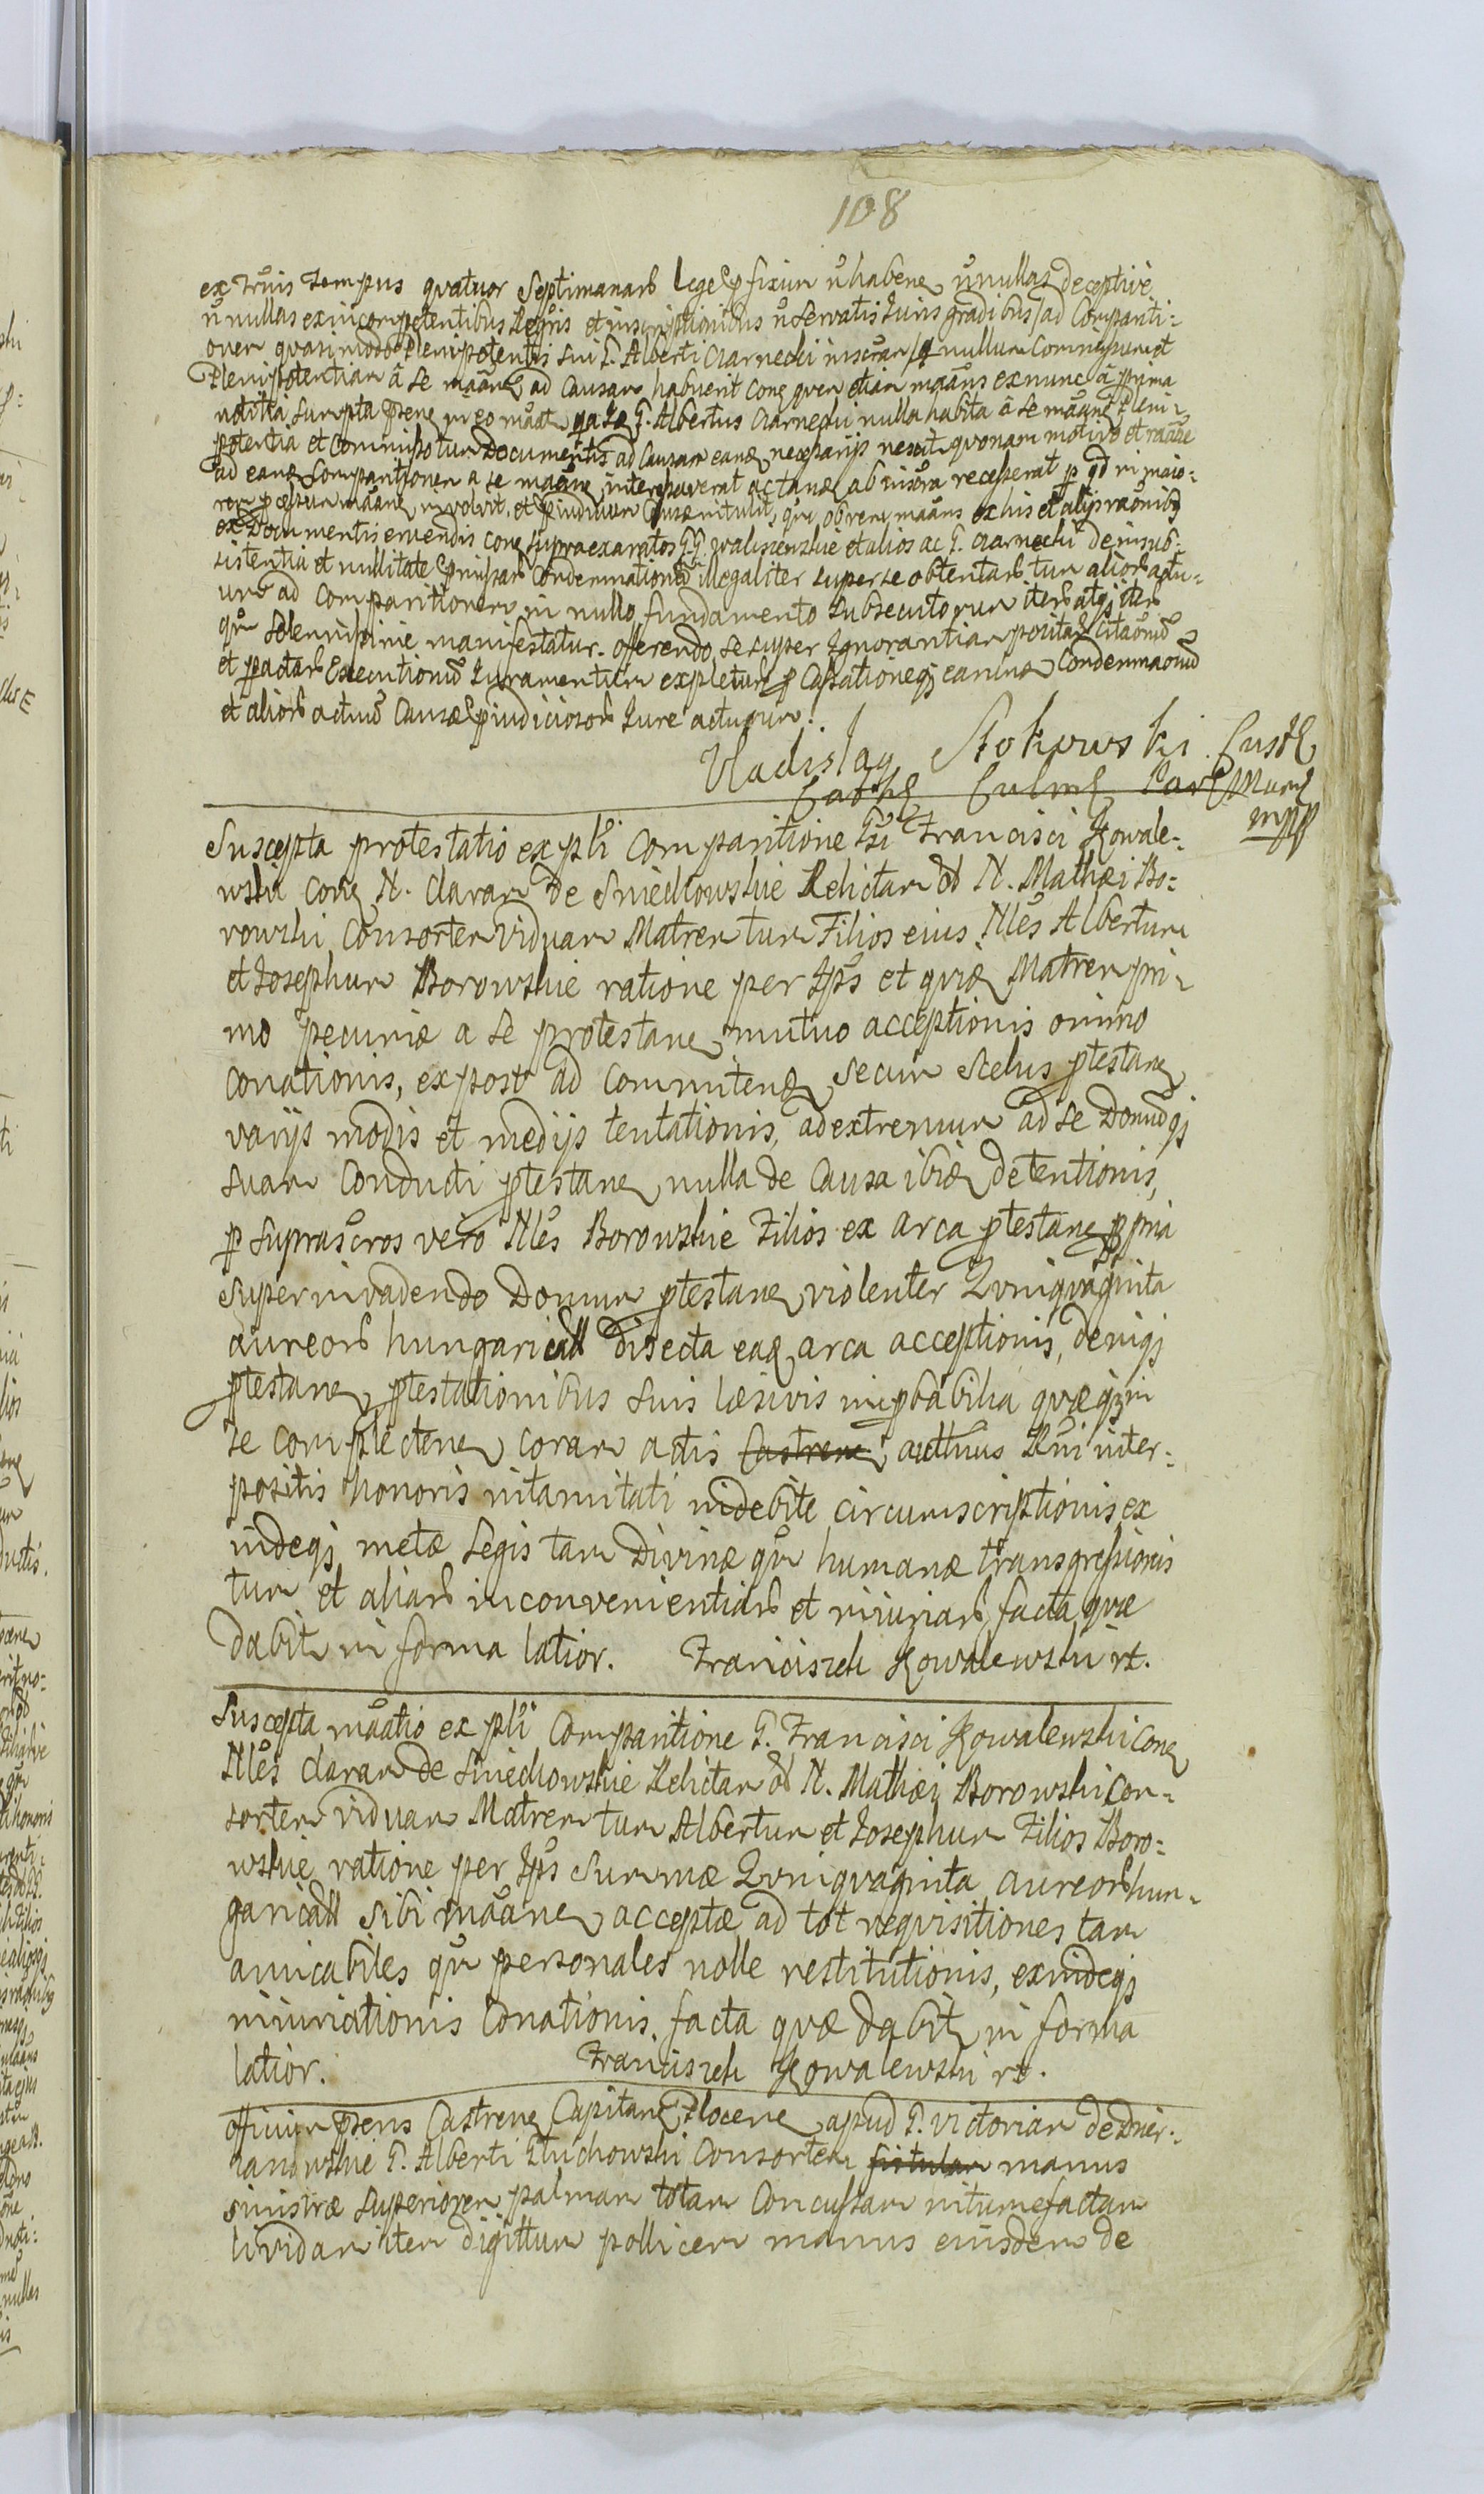 108
ex Truis Tempus quatuor Septimanarū Lege pfixum n̊ habene n̊ nullas deceptive
n̊ nullas ex incompetentibus Regris et inscriptionibus n̊ servatis Iuris gradibus ad Compariti-
onem quasi modo Plenipotentis sui G. Alberti Czarnecki nullum
Plenipotentiam â se maane ad Causam habuerit cong quem etiam maans ex nunc â prima
notitia sumpta psens in eo maat G. Albertus Czarnecki nulla habita â se maane Pleni-
potentia et Documentis ad Causam necessarijs nescit quonam motivo et
ad eam Comparitionem a se maane interessaverat recesserat p qd in maio-
rem maane involvit et piudicium Causæ intulit, qui maans ex his et alijs raonibq
ex Documentis eruendis cong supraexaratos GG. Waliszewskie et alios ac G. Czarnecki de insub-
sistentia et nullitate pmissarū Condemnationū illegaliter super se obtentarū tum aliorū actu-
um ad Comparitionem in nullo fundamento subsecutorum iterū atqj iterū
qm̊ solennissime manifestatur. offerendo se super Ignorantiam citaonum
et pactarū Executionū Iuramentum expleturū Cassationeqj earund Condemnaonum
et aliorū actuū Causæ piudiciosorū Iure acturum.
Vladislaq Stokowski Cust
Cath Culm Can
mpp
Suscepta protestatio ex psti Comparitione Gsi Francisci Kowale-
wski cong N. Claram de Smiechowskie Relictam N. Mathæi Bo-
rowski Consortem Viduam Matrem tum Filios eius Nles Albertum
et Iosephum Borowskie ratione per Ips et quid Matrem pri-
mo pecuniæ a se protestane mutuo acceptionis omino
conationis, expost ad committend secum scelus ptestane
varijs modis et medijs tentationis, ad extremum ad se Domūqj
suam Conducti ptestane nulla de Causa ibid detentionis,
p supras̊cros vero Nles Borowskie Filios ex arca ptestane ppria
superinvadendo Domum ptestane violenter Quinquaginta
aureorū hungaricall disecta ead arca acceptionis, deniqj
ptestane ptestationibus suis læsivis improbabilia quæqj in
se complectene coram actis Castrene authūs Rni inter-
positis honoris intamitati indebite circumscriptionis ex
indeqj metæ Legis tam Divinæ qm̊ humanæ transgressionis
tum et aliarū inconvenientiarū et iniuriarū facta quæ
dabitr in forma latior. Franciszek Kowalewski rt.
Suscepta maatio ex psti Comparitione G. Francisci Kowalewski cong
Nles Claram de Smiechowskie Relictam N. Mathæi Borowski Con-
sortem viduam Matrem tum Albertum et Iosephum Filios Boro-
wskie ratione per Ips summæ Quinquaginta aureorū hun-
garicall sibi maane acceptæ ad tot requisitiones tam
amicabiles qm̊ personales nolle restitutionis, exindeqj
iniuriationis Conationis, facta quæ dabitr in forma
latior. Franciszek Kowalewski rt.
officium psens Castrene Capitane Plocene apud G. Victoriam de Dzier-
zanowskie G. Alberti Głuchowski Consortem fistulam manus
sinistræ superiorem palmam totam Concussam intumefactam
lividam item digittum pollicem manus eiusdem de